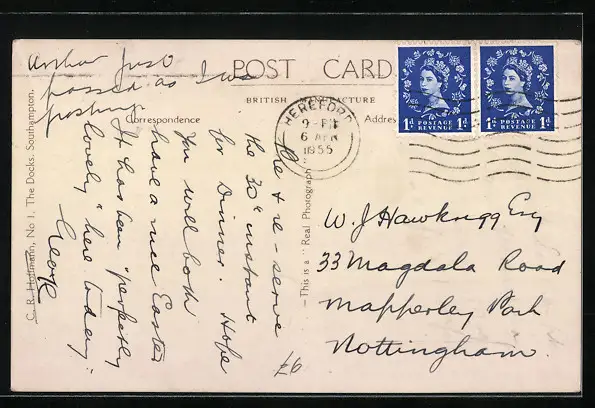 Arthur just
passed as I was
posting
POST CARD
BRITISH MANUFACTURE
Correspondence
Address
HEREFORD
9 - PM
6 APR
1955
1D POSTAGE REVENUE 1D
1D POSTAGE REVENUE 1D
the & re-serve
the 30th instant
for Dinner. Hope
you will both
have a nice Easter
It has been "perfectly
lovely" here today.
C. R. Hoffmann, No 1, The Docks, Southampton.
This is a "Real Photograph"
W. J. Hawkrigg Esq
33 Magdala Road
Mapperley Park
Nottingham.